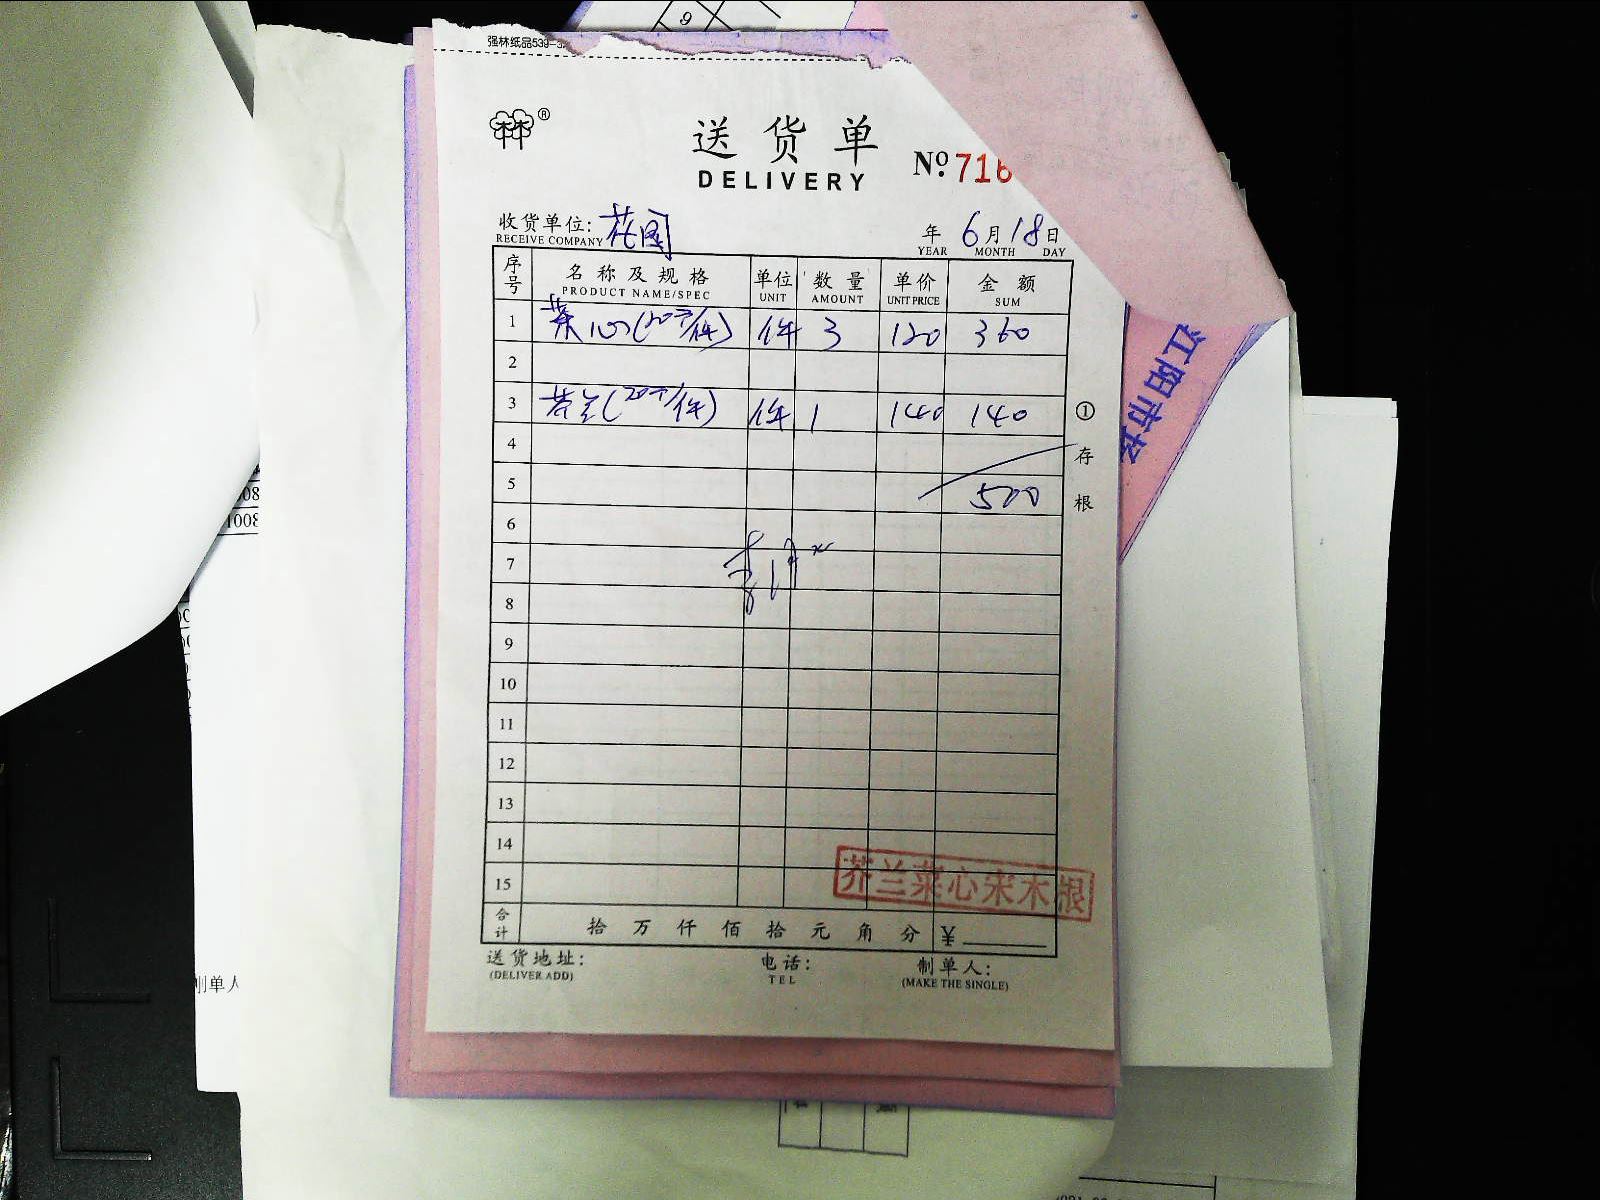 强林纸品539-3
9
®
送货单
DELIVERY
№ 716
收货单位: 花园
RECEIVE COMPANY
年 6月18日
YEAR MONTH DAY
序号 名称及规格 单位 数量 单价 金额
PRODUCT NAME/SPEC UNIT AMOUNT UNIT PRICE SUM
1 菜心(20斤/件) 件 3 120 360
2
3 芥兰(20斤/件) 件 1 140 140
4
5 500
6
7
8
9
10
11
12
13
14
15
合计 拾 万 仟 佰 拾 元 角 分 ¥
送货地址: 电话: 制单人:
(DELIVER ADD) TEL (MAKE THE SINGLE)
①存根
芥兰菜心宋木根
江阳市场
008
1008
制单人